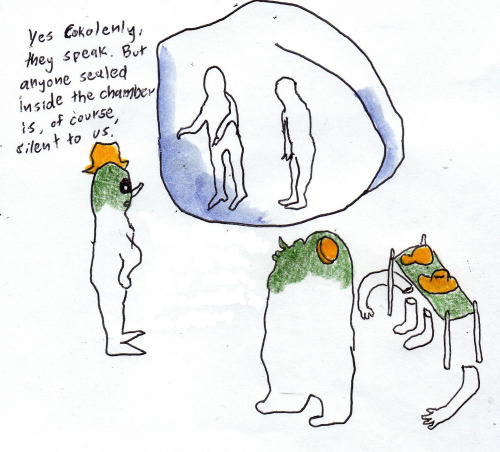 Yes Cokolenly,
they speak. But
anyone sealed
inside the chamber
is, of course,
silent to us.